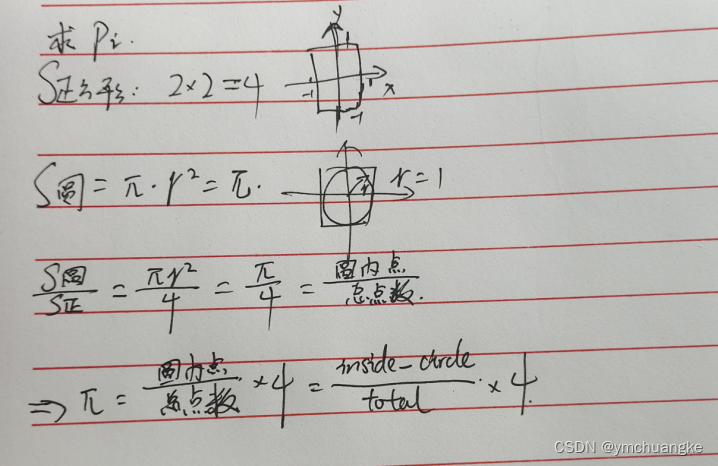 求 Pi.
S正方形: 2×2=4
y
x
-1
1
1
-1
S圆 = π·r² = π.
r=1
S圆/S正 = πr²/4 = π/4 = 圆内点/总点数.
⇒ π = 圆内点/总点数 ×4 = inside-circle/total ×4.
CSDN @ymchuangke